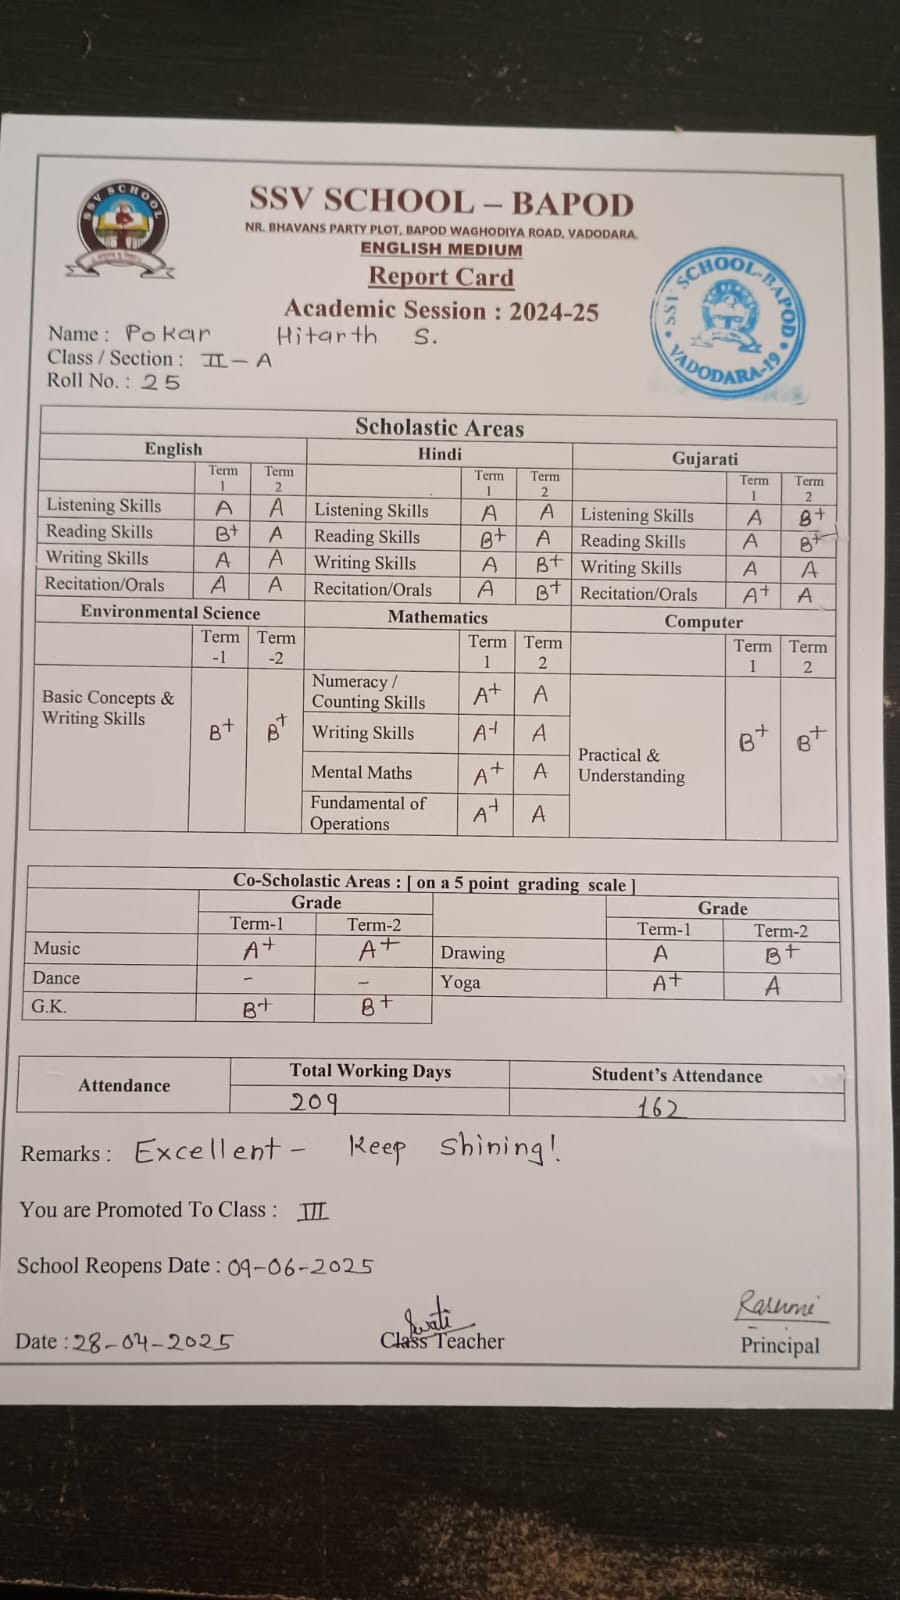 SSV SCHOOL
SSV SCHOOL – BAPOD
NR. BHAVANS PARTY PLOT, BAPOD WAGHODIYA ROAD, VADODARA.
ENGLISH MEDIUM
Report Card
Academic Session : 2024-25
SSV SCHOOL-BAPOD
VADODARA-19
Name : Pokar Hitarth S.
Class / Section : II - A
Roll No. : 25
Scholastic Areas
English Hindi Gujarati
Term 1 Term 2 Term 1 Term 2 Term 1 Term 2
Listening Skills A A Listening Skills A A Listening Skills A B+
Reading Skills B+ A Reading Skills B+ A Reading Skills A B+
Writing Skills A A Writing Skills A B+ Writing Skills A A
Recitation/Orals A A Recitation/Orals A B+ Recitation/Orals A+ A
Environmental Science Mathematics Computer
Term -1 Term -2 Term 1 Term 2 Term 1 Term 2
Basic Concepts & Writing Skills B+ B+
Numeracy / Counting Skills A+ A
Writing Skills A+ A
Mental Maths A+ A
Fundamental of Operations A+ A
Practical & Understanding B+ B+
Co-Scholastic Areas : [ on a 5 point grading scale ]
Grade Grade
Term-1 Term-2 Term-1 Term-2
Music A+ A+ Drawing A B+
Dance - - Yoga A+ A
G.K. B+ B+
Attendance Total Working Days Student's Attendance
209 162
Remarks : Excellent - Keep shining!
You are Promoted To Class : III
School Reopens Date : 09-06-2025
Swati Rasumi
Date : 28-04-2025 Class Teacher Principal